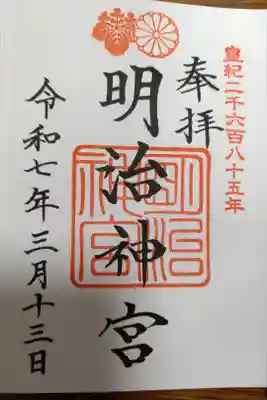 皇紀二千六百八十五年
奉拝
明治神宮
明治神宮
令和七年三月十三日